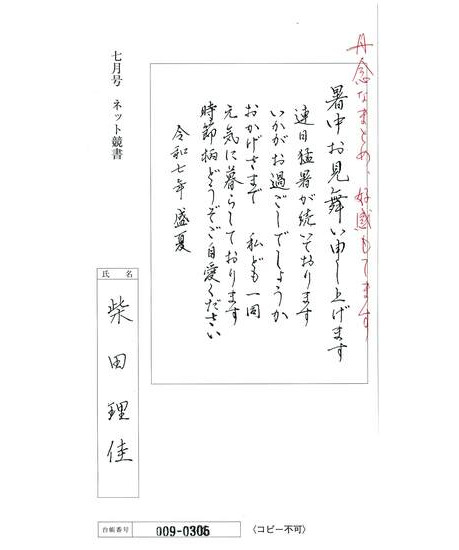 丹念なまとめ、好感もてます
暑中お見舞い申し上げます
連日猛暑が続いております
いかがお過ごしでしょうか
おかげさまで 私ども一同
元気に暮らしております
時節柄どうぞご自愛ください
令和七年 盛夏
七月号 ネット競書
氏名
柴田理佳
台帳番号 009-0306 〈コピー不可〉